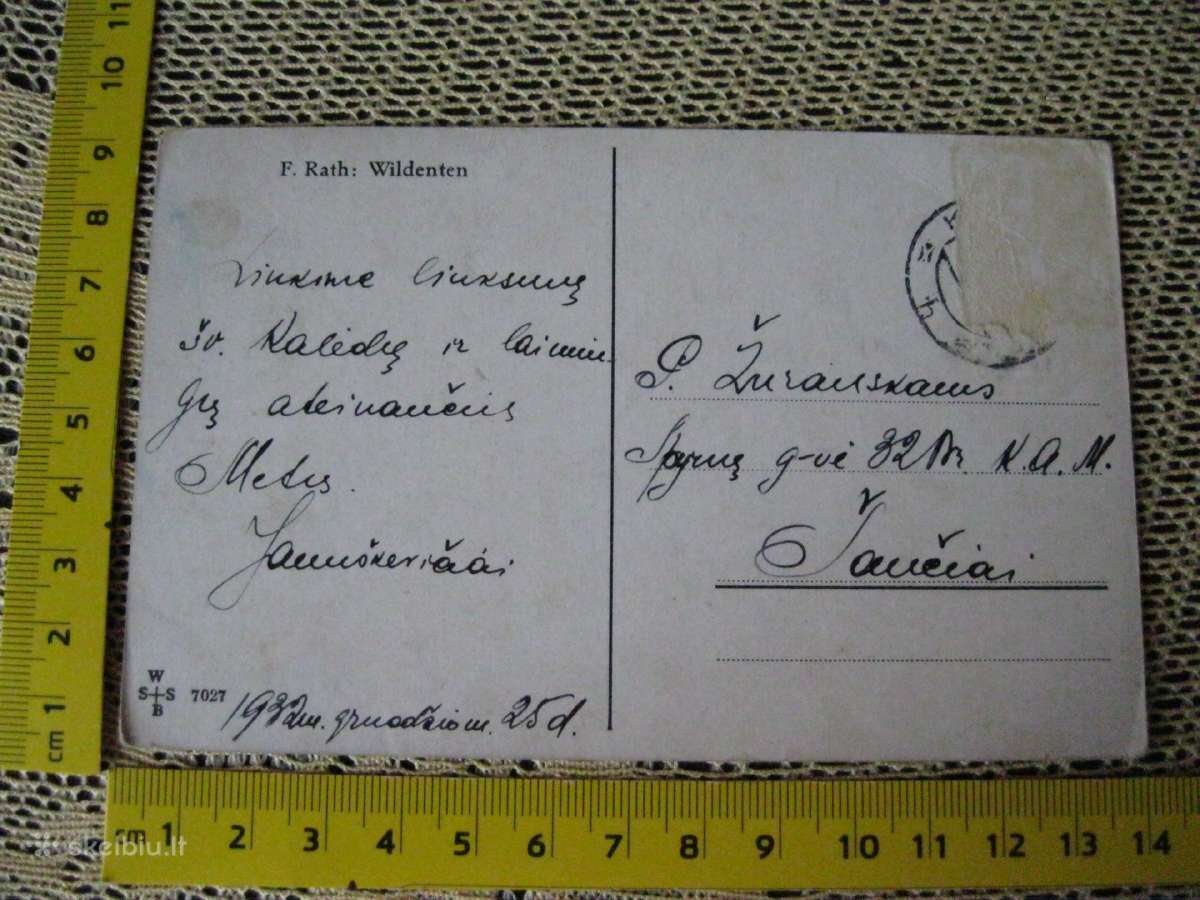 F. Rath: Wildenten
Linkime linksmų
šv. Kalėdų ir laimin-
gų ateinančių
Metų.
Januškevičiai
W
S S
B
7027
1932m. gruodžio m. 25d.
P. Žurauskams
g-vė 32 Nr. K.A.M.
Šančiai
11
10
9
8
7
6
5
4
3
2
cm 1
cm 1 2 3 4 5 6 7 8 9 10 11 12 13 14
skelbiu.lt